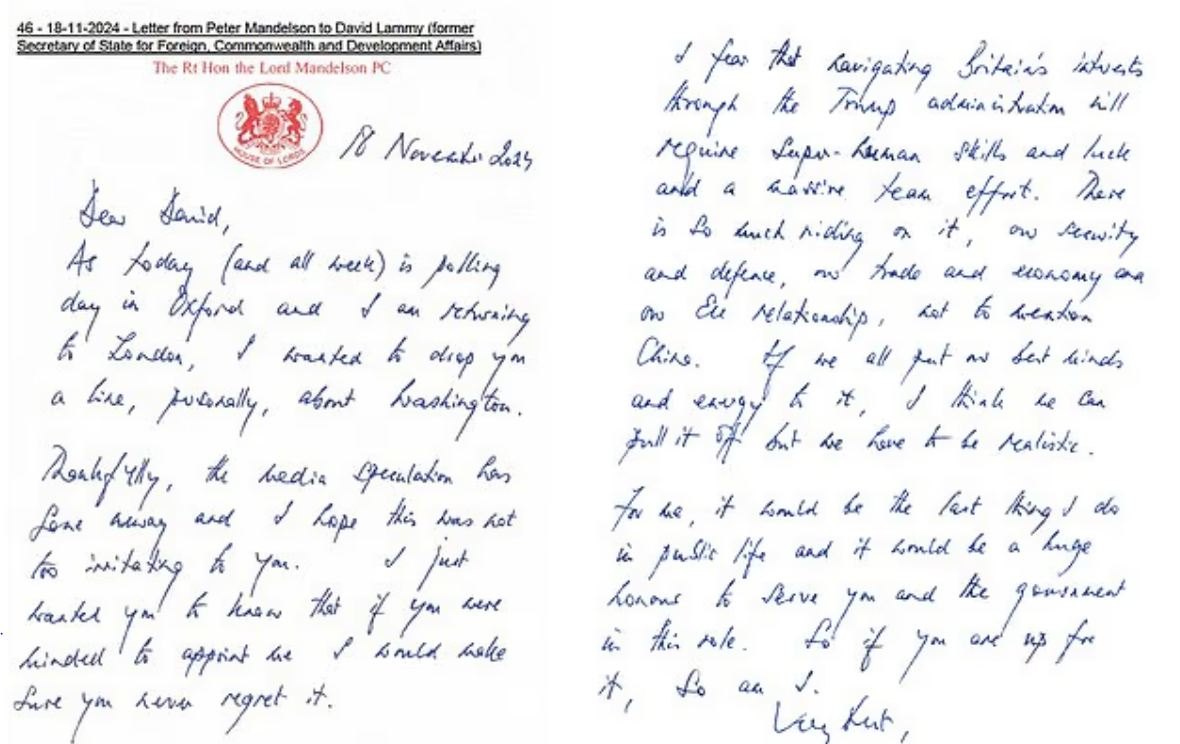 46 - 18-11-2024 - Letter from Peter Mandelson to David Lammy (former
Secretary of State for Foreign, Commonwealth and Development Affairs)
The Rt Hon the Lord Mandelson PC
HOUSE OF LORDS
18 November 2024
Dear David,
As today (and all week) is polling
day in Oxford and I am returning
to London, I wanted to drop you
a line, personally, about Washington.
Thankfully, the media speculation has
gone away and I hope this was not
too irritating to you. I just
wanted you to know that if you were
minded to appoint me I would make
sure you never regret it.
I fear that navigating Britain's interests
through the Trump administration will
require super-human skills and luck
and a massive team effort. There
is so much riding on it, our security
and defence, our trade and economy and
our EU relationship, not to mention
China. If we all put our best minds
and energy to it, I think we can
pull it off but we have to be realistic.
For me, it would be the last thing I do
in public life and it would be a huge
honour to serve you and the government
in this role. So if you are up for
it, so am I.
Very best,